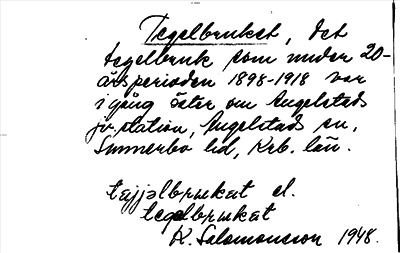 Tegelbruket, det
tegelbruk som under 20-
årsperioden 1898-1918 var
igång öster om Angelstads
jv.station, Angelstads sn,
Sunnerbo hd, Krb. län.
tejjəlbrukat el.
tegəlbrukat
K. Salomonsson 1948.